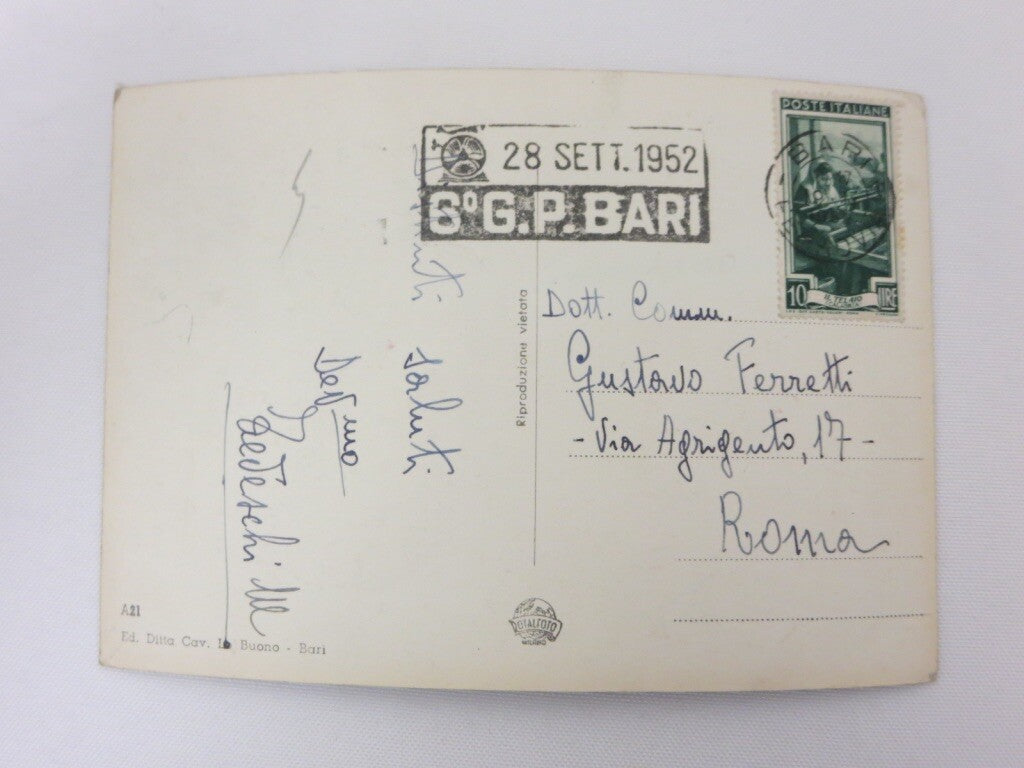 28 SETT. 1952
6º G.P. BARI
POSTE ITALIANE
BARI
10 LIRE
IL TELAIO
CALABRIA
Dott. Comm.
Gustavo Ferretti
- Via Agrigento, 17 -
Roma
saluti
Dev.mo
Tedeschi
Riproduzione vietata
A21
Ed. Ditta Cav. Lo Buono - Bari